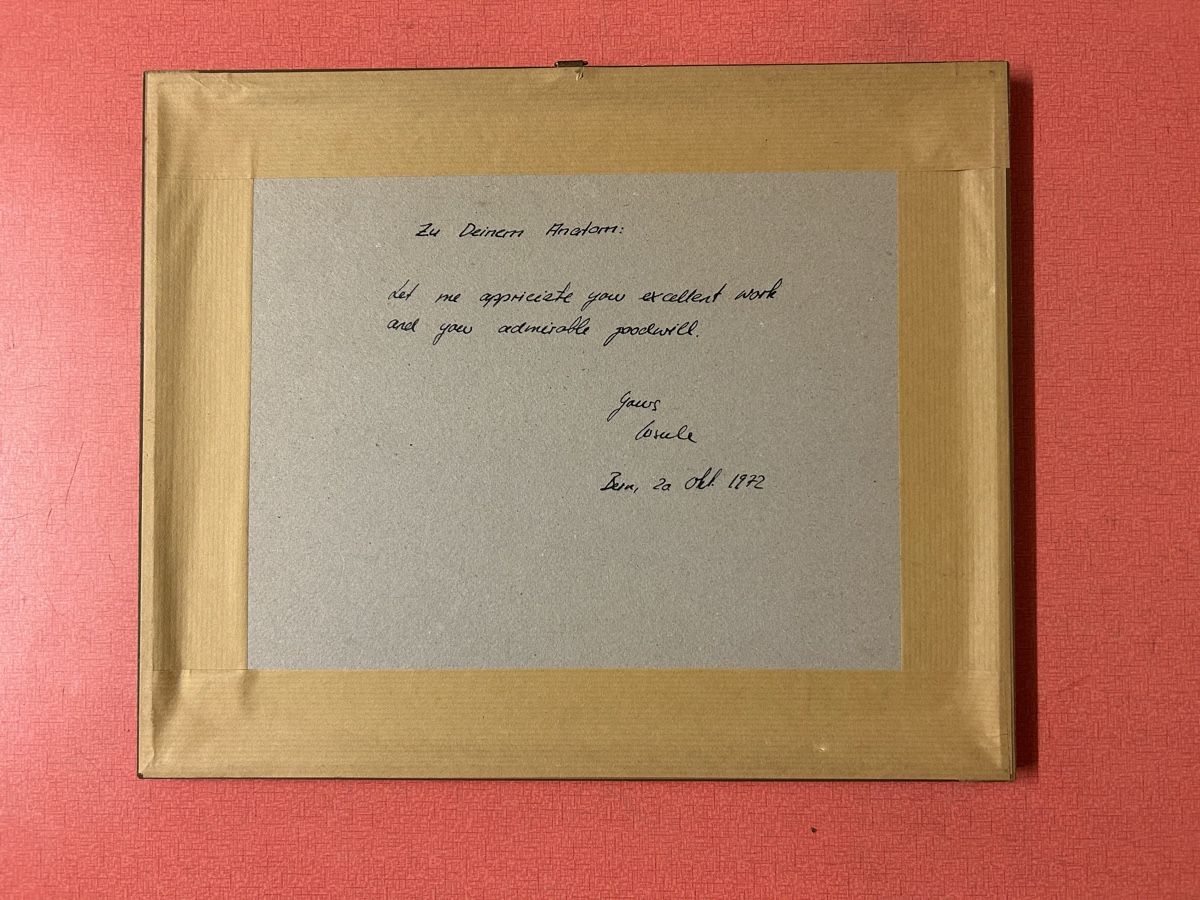 Zu Deinem Anatom:
Let me appriciate your excellent work
and your admirable goodwill.
Yours
Bern, 20 Okt. 1972